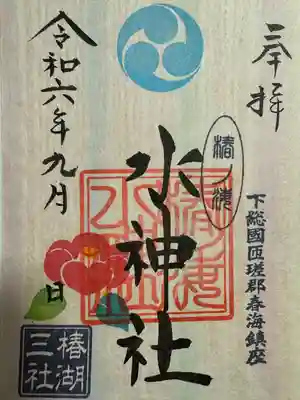 奉拝
下総國匝瑳郡春海鎮座
椿ノ海
水神社
令和六年九月
日
椿湖
三社